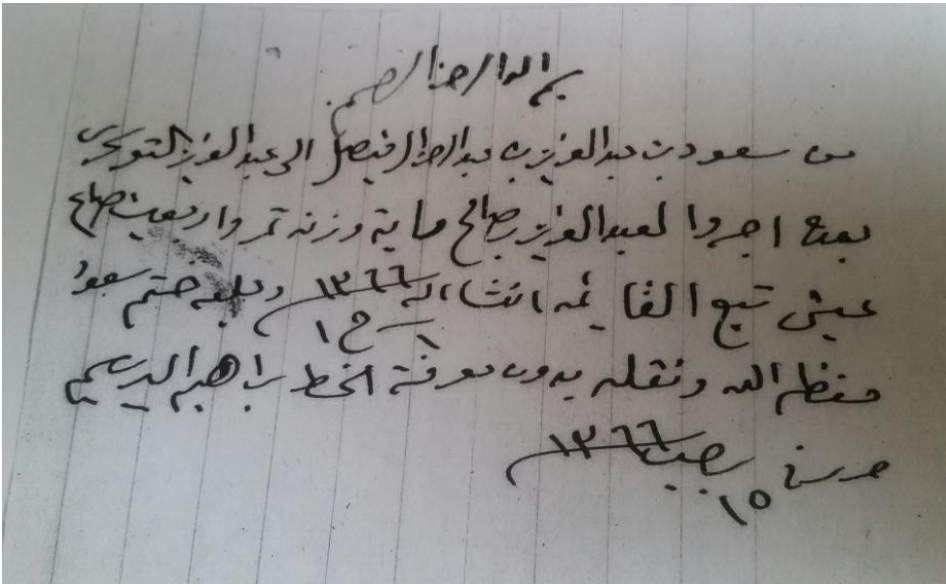 بسم الله الرحمن الرحيم
من سعود بن عبدالعزيز بن عبدالرحمن الفيصل الى عبدالعزيز التويجري
بعده اجروا لعبدالعزيز بن صالح ماية وزنة تمر واربعين صاع
عيش تبع القائمه انشاالله ١٣٦٦ وعليه ختم سعود
ج ١
حفظه الله ونقله بدون معرفة الخط براهيم
حرر في رجب ١٣٦٦
١٥